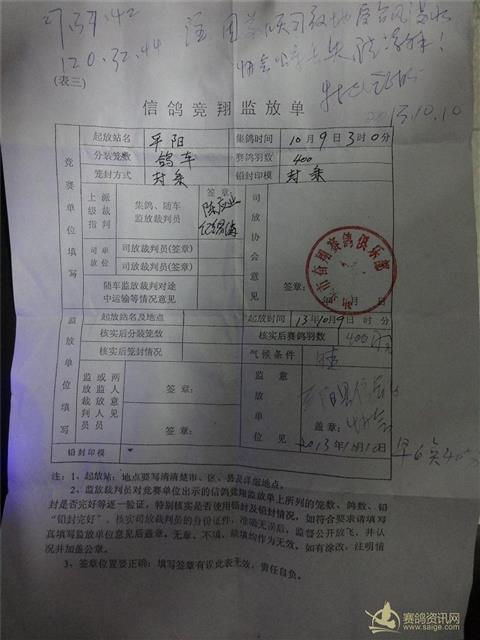 27.39.42
120.32.44
(表三)
2013.10.10
信鸽竞翔监放单
竞赛单位填写
起放站名 平阳 集鸽时间 10月9日3时0分
分装笼数 鸽车 赛鸽羽数 400
笼封方式 封条 铅封印模 封条
上级指派裁判
集鸽、随车监放裁判员
签章:
司放单位
司放裁判员(签章)
司放裁判员(签章)
随车监放裁判对途中运输等情况意见
司放协会意见
签章:
年 月 日
奋翔赛鸽俱乐部
监放单位填写
起放站名及地点 起放时间 13年10月9日 时 分
核实后分装笼数 核实后赛鸽羽数 400羽
核实后笼封情况 气候条件 晴
监放裁判员
签章:
签章:
监放单位意见
盖章:
2013年10月10日
铅封印模
注:1、起放站:地点要写清清楚市、区、县及详细地点。
2、监放裁判员对竞赛单位出示的信鸽竞翔监放单上所列的笼数、鸽数、铅
封是否完好等逐一验证,特别核实是否使用铅封及铅封情况,如符合要求请填写
“铅封完好”。核实司放裁判员的身份证件,准确无误后,监督公开放飞,并认
真填写监放单位意见后盖章。无章、不填、缺填均作为无效。如有涂改,注明情
况并加盖公章。
3、签章位置要正确;填写签章有误此表无效,责任自负。
赛鸽资讯网
www.saige.com